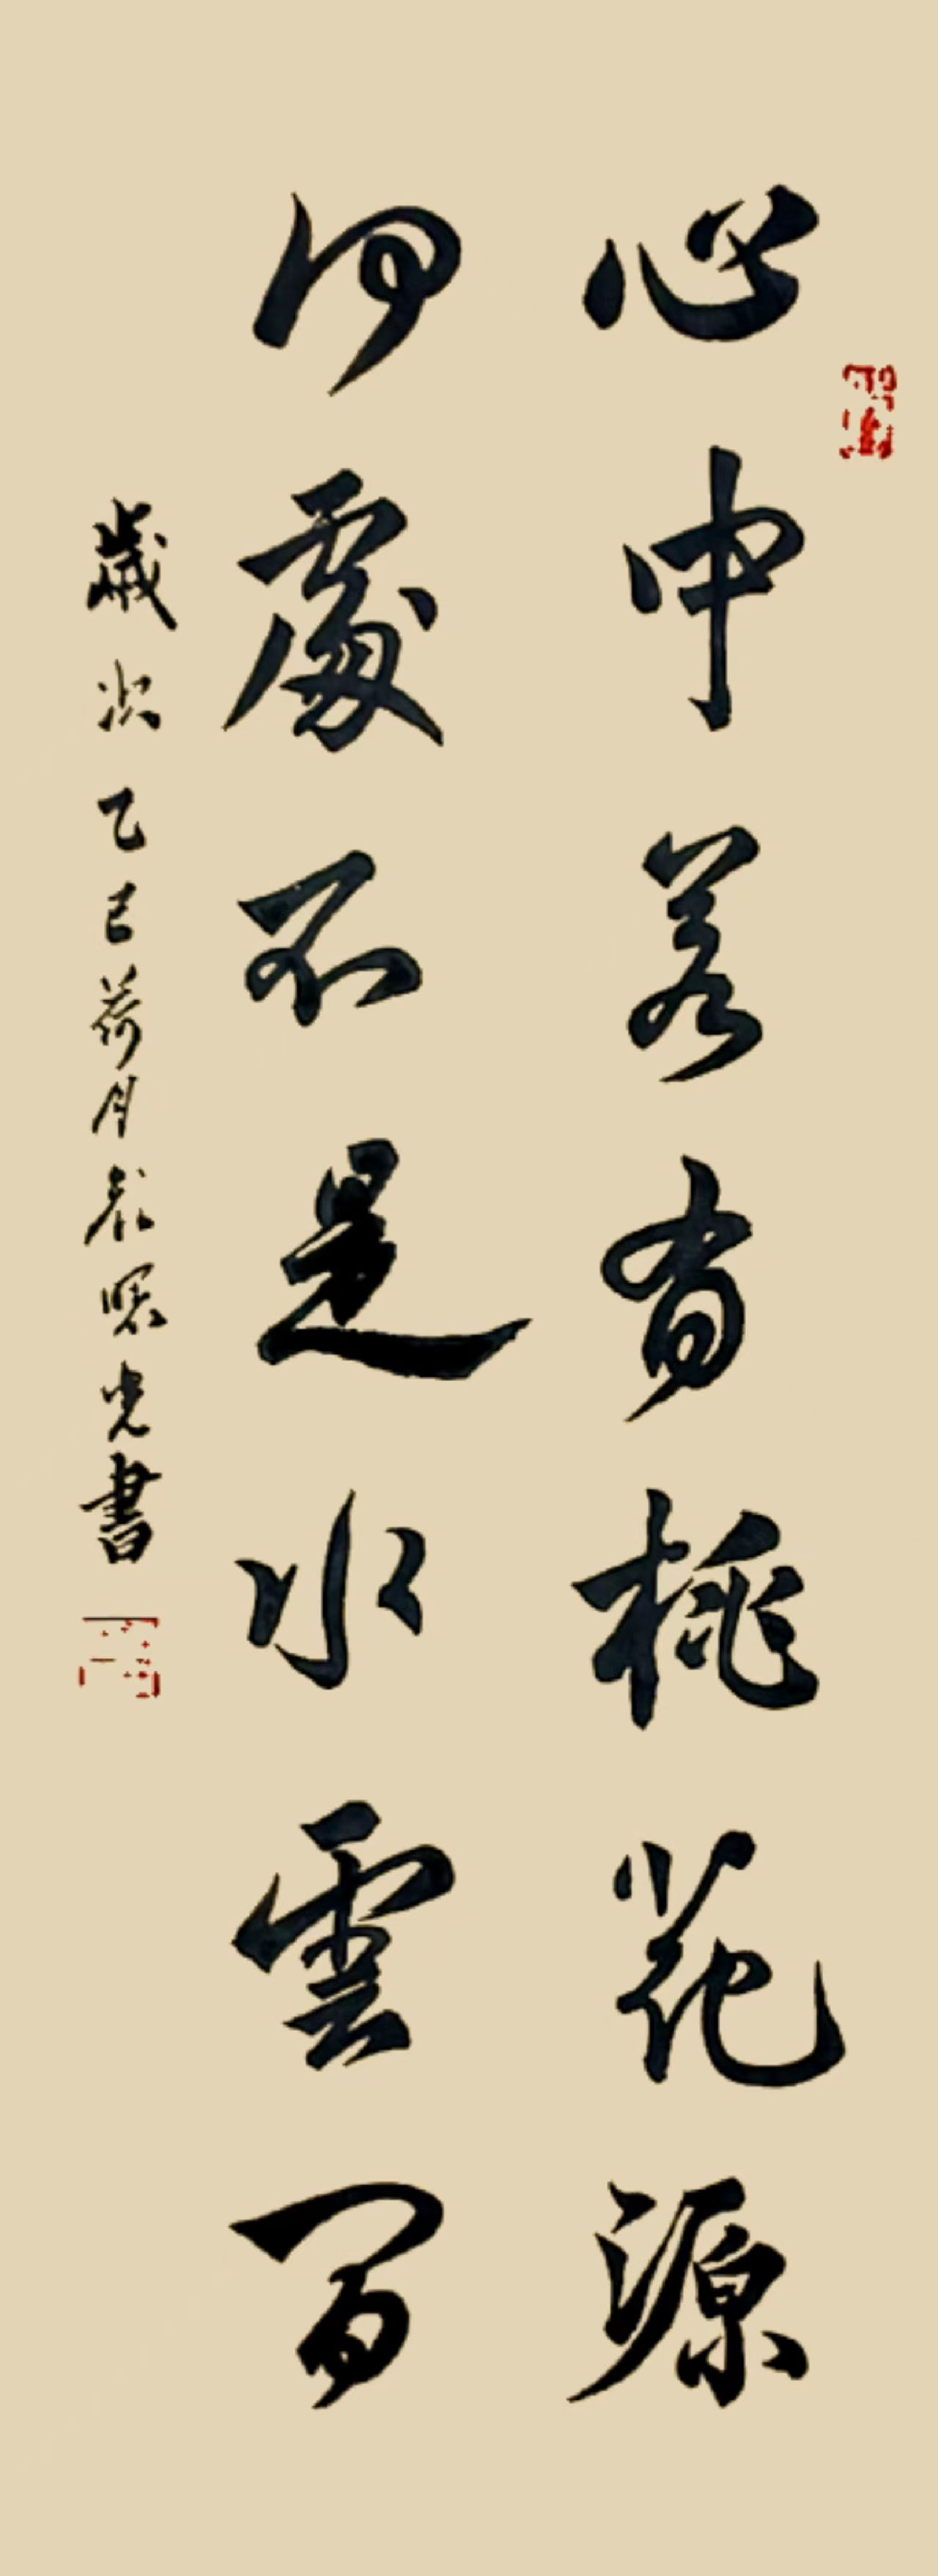 心中若有桃花源
何處不是水雲間
歲次乙巳荷月 光書